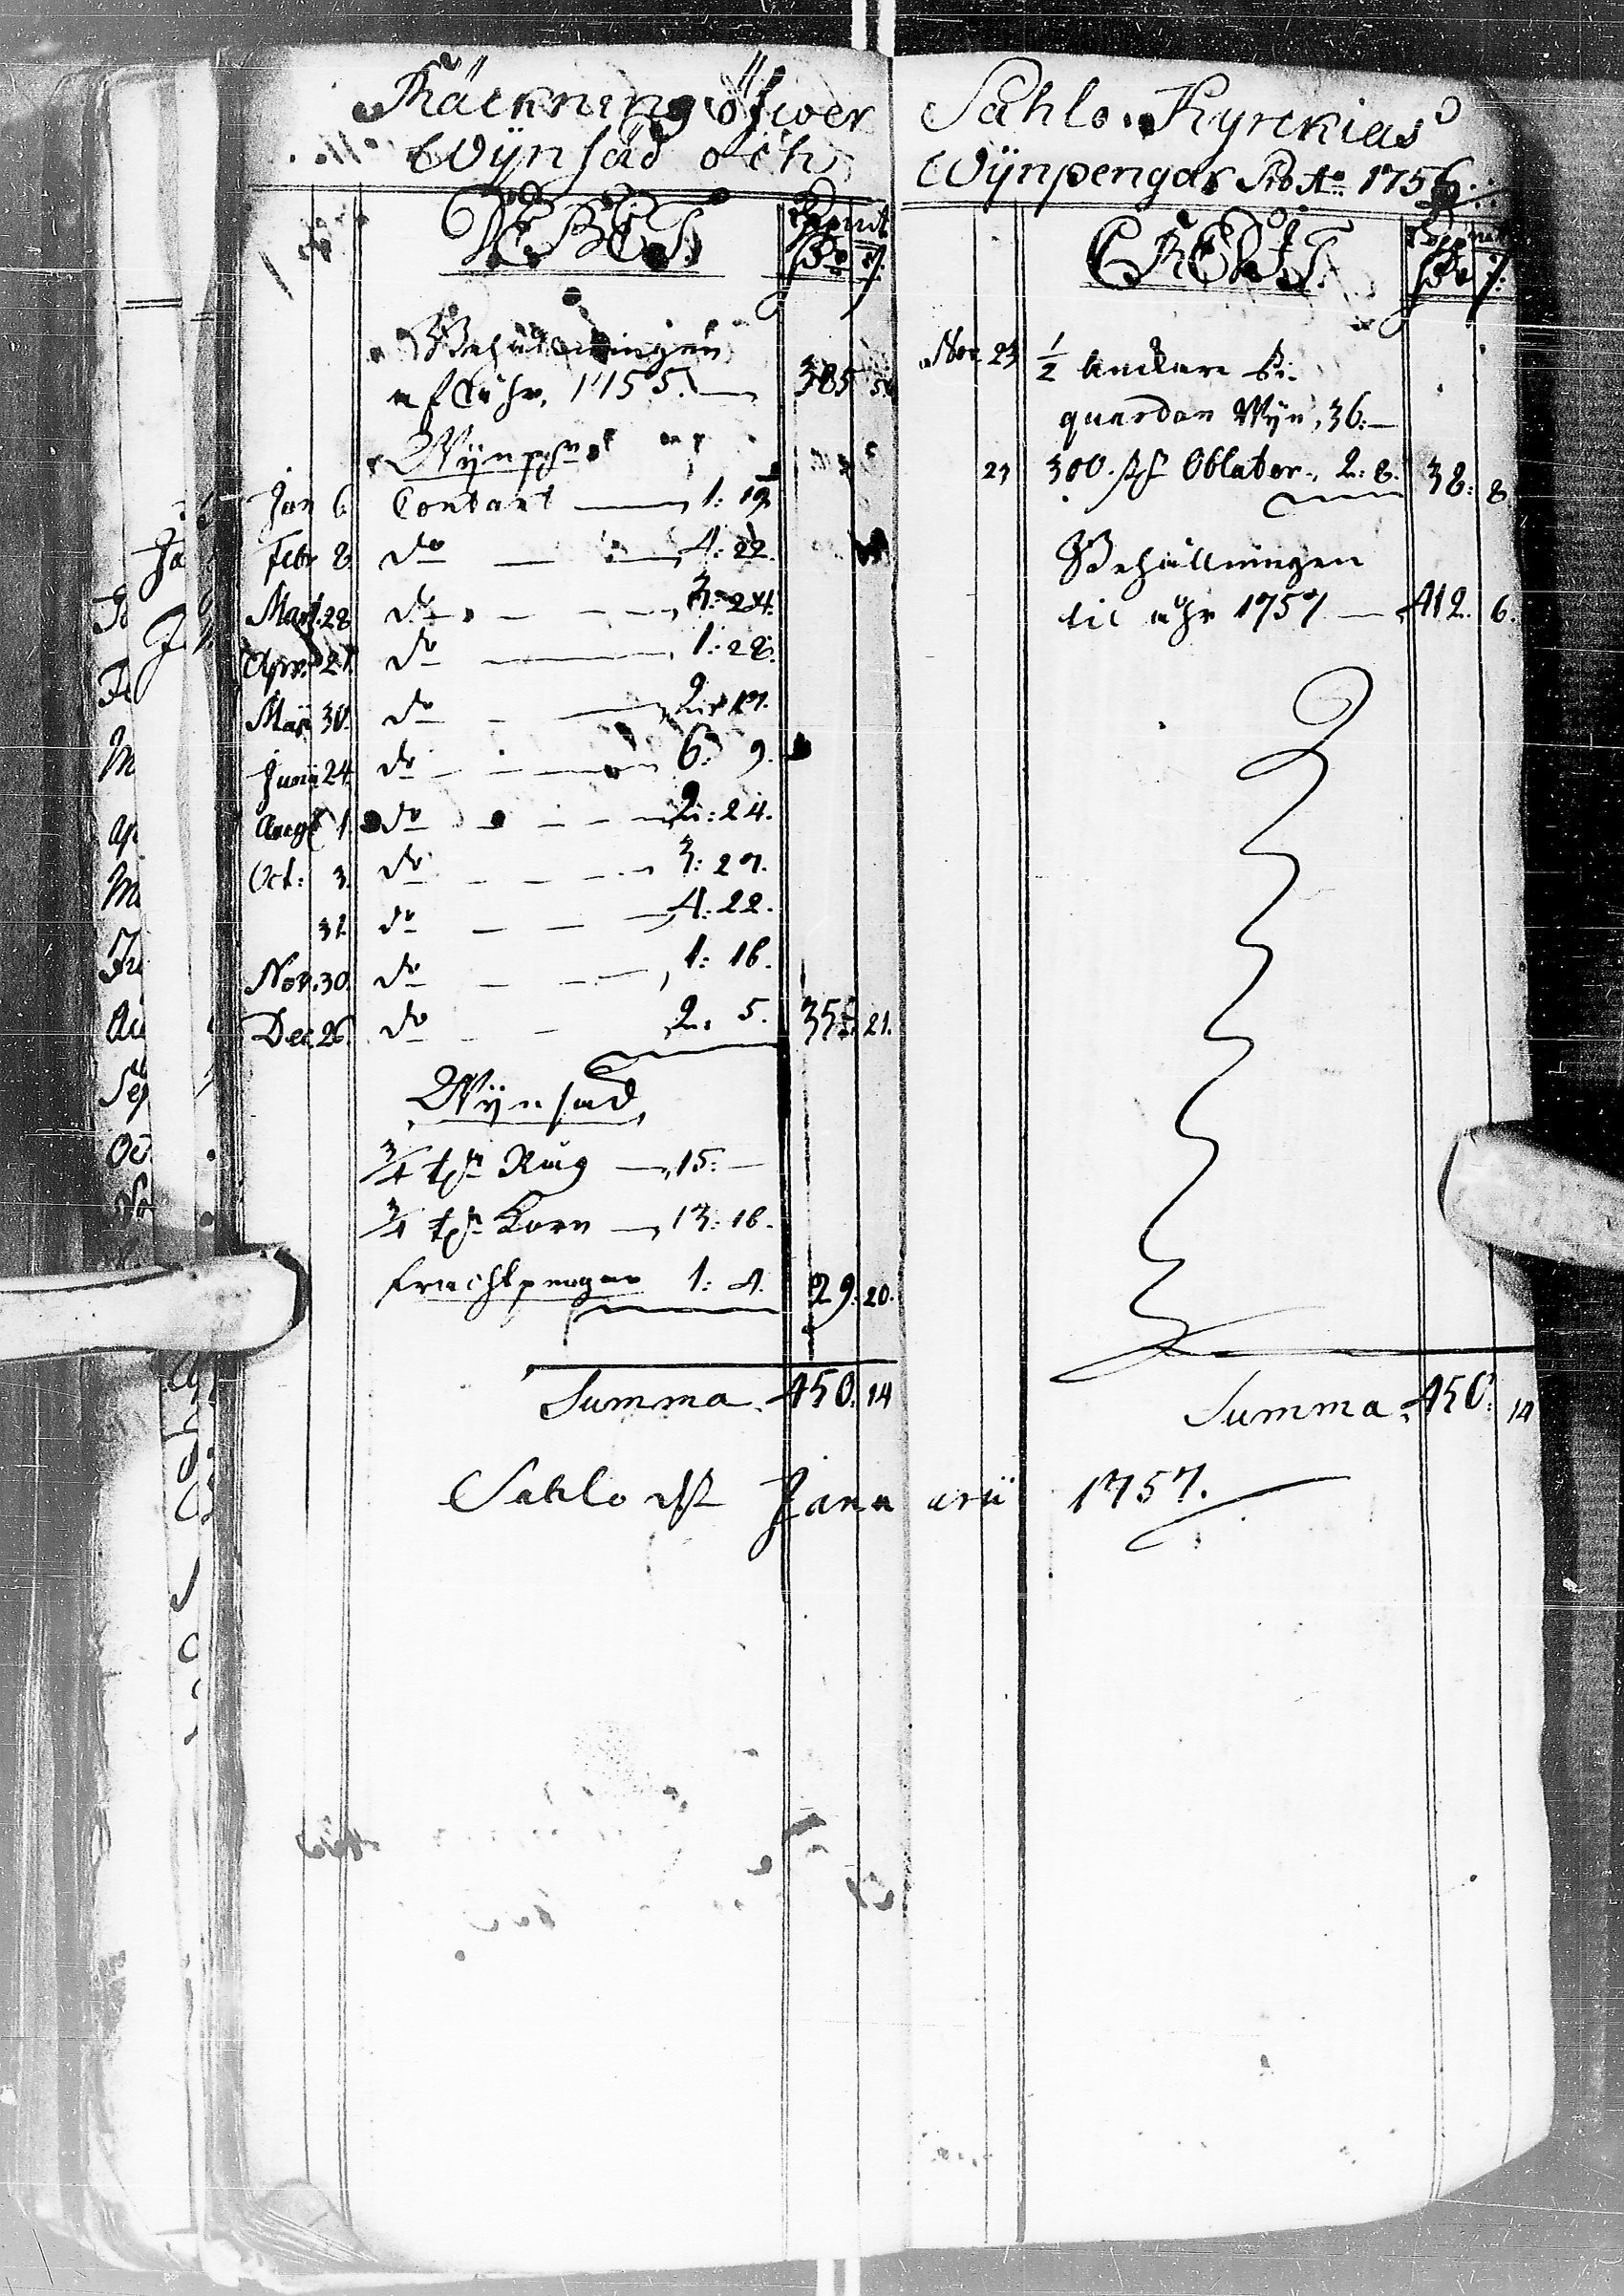 Räckning öfwer
Wÿnsäd och
DEBET.
Behållningen
af åhr, 1755. — 385 5.
Wÿnpgr
Jan 6. Contant — 1: 19.
Febr 2. do — 4: 22.
Mart. 28 do — 3: 24.
Apr. 21. do — 1: 28.
Maÿ 30. do — 2: 17.
Junii 24. do — 6: 9.
Aug 1. do — 2: 24.
Oct: 3. do — 3: 27.
31. do — 4: 22.
Nov. 30. do — 1: 16.
Dec. 26. do — 2: 5. 35: 21.
Wÿnsäd,
3/4 tn Råg — 15: —
3/4 tn Korn — 13: 16.
frachtpengar 1: 4. 29: 20.
Summa. 450. 14
Sahlo Kyrckias
Wÿnpengar Pro Ao 1756.
CREDIT.
Nov. 23 1/2 Anckare Pi-
quardon Wÿn, 36: —
23 300. st Oblater, 2: 8. 38: 8.
Behållningen
til åhr 1757 — 412. 6.
Summa. 450: 14
Sahlo d Januarii 1757.